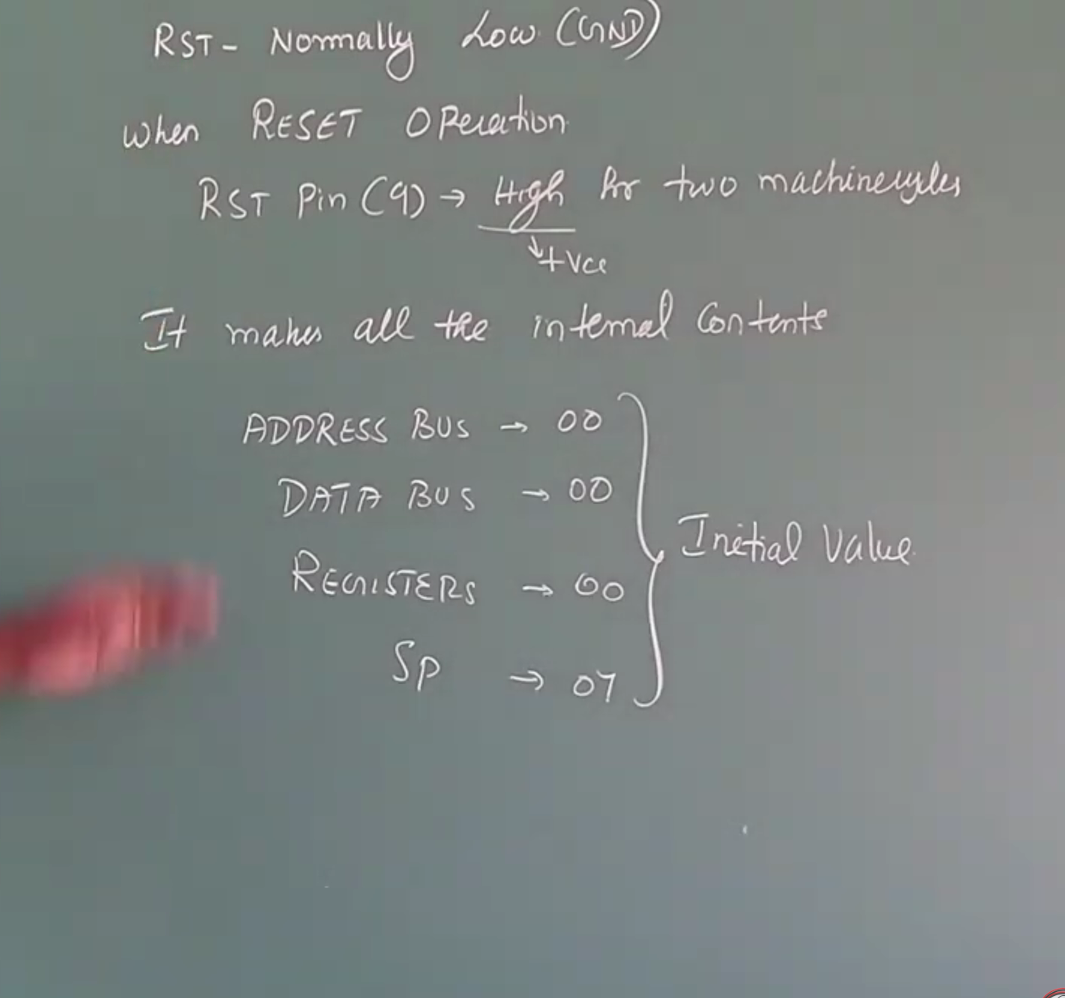 RST - Normally Low (GND)
When RESET OPeration
RST Pin (9) → High for two machinecycles
↓ +Vcc
It makes all the internal Contents
ADDRESS BUS → 00
DATA BUS → 00
REGISTERS → 00
SP → 07
Initial Value